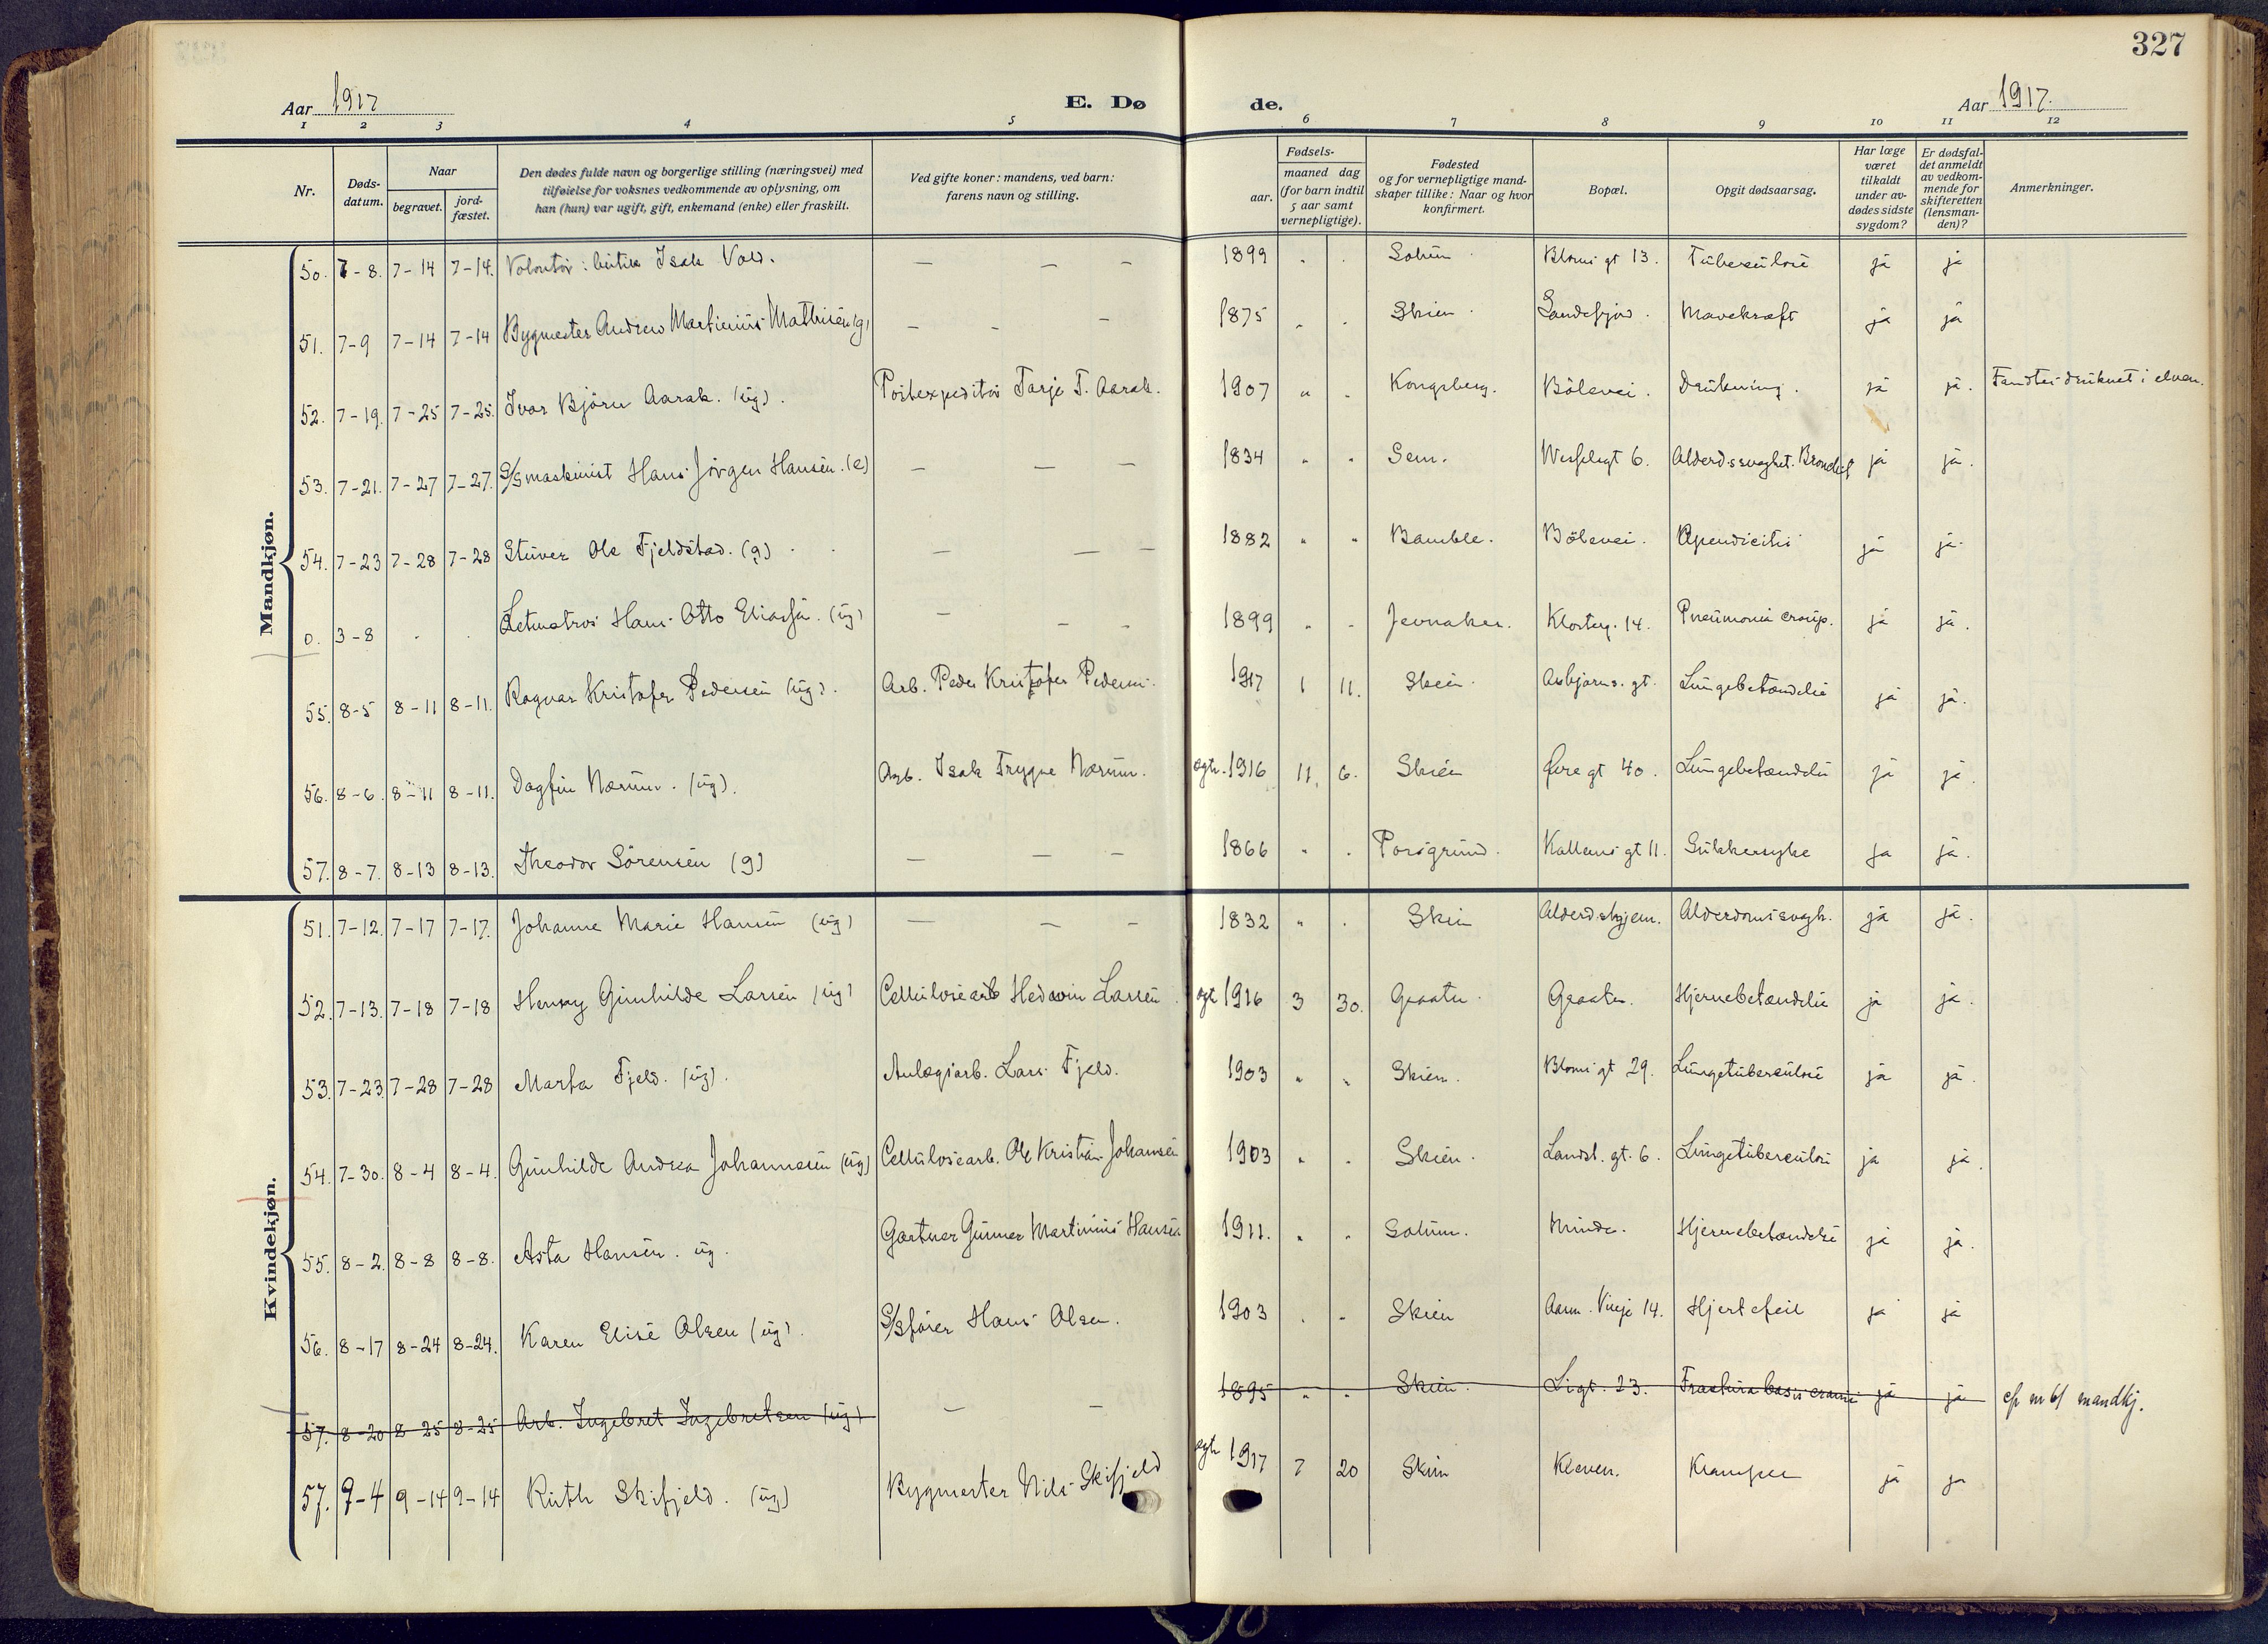 327
Aar 1917 E. Dø de. Aar 1917.
1 2 3 4 5 6 7 8 9 10 11 12
Nr. Døds-datum. Naar begravet. jord-fæstet. Den dødes fulde navn og borgerlige stilling (næringsvei) med tilføielse for voksnes vedkommende av oplysning, om han (hun) var ugift, gift, enkemand (enke) eller fraskilt. Ved gifte koner: mandens, ved barn: farens navn og stilling. Fødsels- aar. maaned dag (for barn indtil 5 aar samt vernepligtige). Fødested og for vernepligtige mand-skaper tillike: Naar og hvor konfirmert. Bopæl. Opgit dødsaarsag. Har læge været tilkaldt under av-dødes sidste sygdom? Er dødsfal-det anmeldt av vedkom-mende for skifteretten (lensman-den)? Anmerkninger.
Mandkjøn.
50. 7-8. 7-14 7-14. Volontör i butik Isak Vold. — — — 1899 " " Solum. Bloms gt 13. Tuberculose ja ja
51. 7-9 7-14 7-14 Bygmester Andrew Martinius Mathisen (g) — — — 1875 " " Skien. Sandefjord. Mavekræft ja ja
52. 7-19. 7-25 7-25. Ivar Björn Aarak. (ug). Postexpeditör Tarje T. Aarak. 1907 " " Kongsberg. Bölevei. Drukning. ja ja. Fandtes druknet i elven.
53. 7-21. 7-27 7-27. S/S maskinist Hans Jörgen Hansen. (e) — — — 1834 " " Sem. Wesselsgt 6. Alderd.ssvaghet. ja ja.
54. 7-23 7-28 7-28 Stuver Ole Fjeldstad. (g) — — — 1882 " " Bamble. Bölevei. Apendicitis ja ja.
0. 3-8 Letmatros Hans Otto Eliassen. (ug) — — — 1899 " " Jevnaker. Klosterg. 14. Pneumonia croup. ja ja.
55. 8-5 8-11 8-11. Ragnar Kristofer Pedersen (ug). Arb. Peder Kristofer Pedersen. 1917 1 11. Skien. Asbjørns. gt. Lungebetændelse ja ja.
56. 8-6. 8-11 8-11. Dagfin Nærum. (ug). Arb. Isak Trygve Nærum. ægte. 1916 11. 6. Skien Övregt 40. Lungebetændelse ja ja.
57. 8-7. 8-13 8-13. Theodor Sörensen (g) — — — 1866 " " Porsgrund. Kallems gt 11. Sukkersyke ja ja.
Kvindekjøn.
51. 7-12. 7-17 7-17. Johanne Marie Hansen (ug) — — — 1832 " " Skien Alderd.shjem. Alderdomssvagh. ja ja.
52. 7-13. 7-18 7-18 Henny Gunhilde Larsen (ug) Cellulosearb Larsen ægt 1916 3 30. Graaten Graaten. Hjernebetændelse ja ja.
53. 7-23 7-28 7-28 Marta Fjeld. (ug). Anlægsarb. Lars Fjeld. 1903 " " Skien. Bloms gt 29. Lungetuberculose ja ja.
54. 7-30. 8-4 8-4. Gunhilde Andrea Johannesen (ug) Cellulosearb. Ole Kristian Johansen 1903 " " Skien. Landst. gt. 6. Lungetuberculose ja ja.
55. 8-2. 8-8 8-8. Asta Hansen. ug. Gartner Gunner Martinius Hansen 1911. " " Solum. Minde. Hjernebetændelse ja ja.
56. 8-17 8-24 8-24. Karen Elise Olsen (ug). S/Sförer Hans Olsen. 1903 " " Skien Aasm. Vinje 14. Hjertefeil ja ja
57. 8-20 8-25 8-25 Arb. Ingebret Ingebretsen (ug) — — 1895 " " Skien. Ligt. 23. Fractura basis cranii ja ja cfr m 61 mandkj.
57. 9-4 9-14 9-14 Ruth Skifjeld. (ug) Bygmester Nils Skifjeld ægte 1917 7 20 Skien Kleven. Kramper ja ja